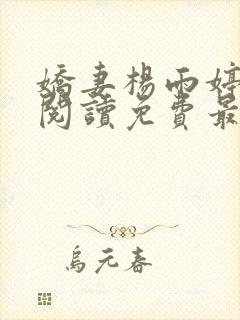 嬌妻楊雨婷
閱讀免費最
烏元春